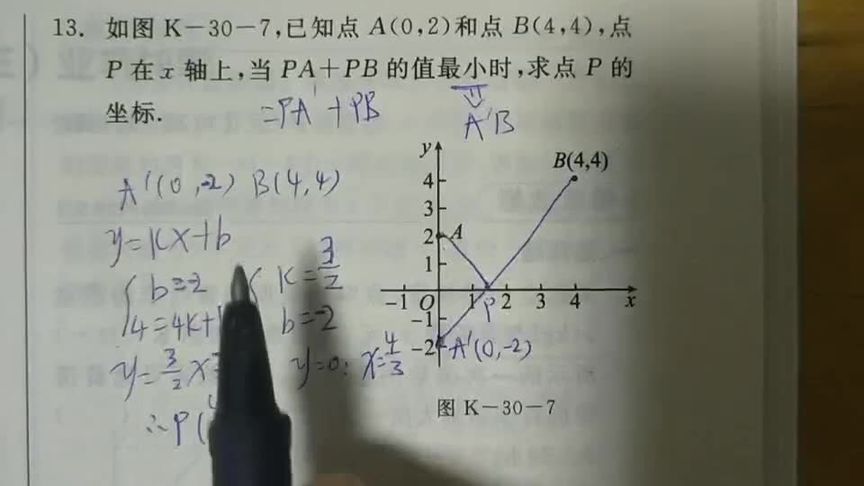 13. 如图 K－30－7,已知点 A(0,2)和点 B(4,4),点
P 在 x 轴上,当 PA＋PB 的值最小时,求点 P 的
坐标.
=PA'+PB
A'B
A'(0,-2) B(4,4)
y=kx+b
b=2
k=3/2
4=4k+
b=-2
y=3/2x
y=0: x=4/3
∴P(
y
B(4,4)
4
3
2
A
1
-1
O
1
2
3
4
x
P
-1
-2
A'(0,-2)
图 K－30－7